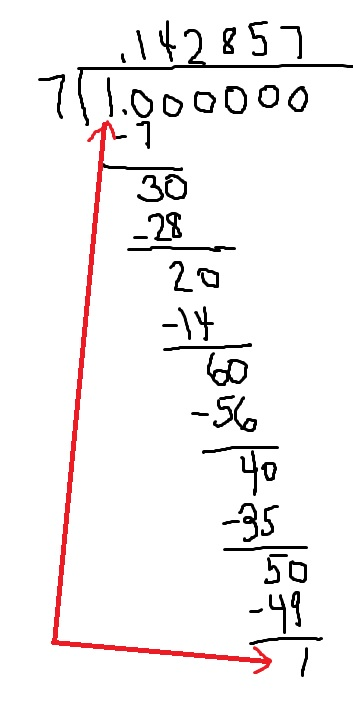 .142857
7 1.000000
-7
30
-28
20
-14
60
-56
40
-35
50
-49
1